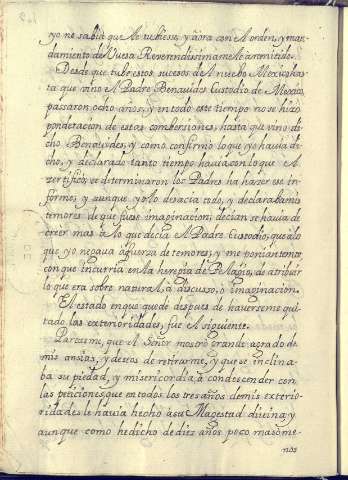 yo no sabia que se hubiese, y aora con el orden, y man-
damiento de Vuesa Reverendissima se à remitido.
Desde que tube estos sucesos del nuebo Mexico has
ta que vino el Padre Benavides Custodio de Mexico,
passaron ocho años, y en todo este tiempo no se hizo
ponderacion de estas combersiones, hasta que vino di
cho Benavides, y como confirmò lo que yo havia di
cho, y declarado tanto tiempo havia con lo que el
zertificò, se determinaron los Padres ha hazer ese in
forme; y aunque yo lo desacia todo, y declaraba mis
temores de que fuese imaginacion; decian se havia de
creer mas a lo que decia el Padre Custodio, que a lo
que yo negava à fuerza de temores, y me ponian temor
con que incurria en la heregia de Pelagio, de atribuir
lo que era sobre natural, à discurso, ò imaginacion.
El estado en que quedè despues de haverseme qui
tado las exterioridades, fue el siguiente.
Pareceme, que el Señor mostrò grande agrado de
mis ansias, y deseos de retirarme, y que se inclina-
ba su piedad, y misericordia à condescender con
las peticiones que en todos los tres años de mis exterio-
ridades le havia hecho à su Magestad divina; y
aunque como he dicho de diez años poco mas ò me-
nos